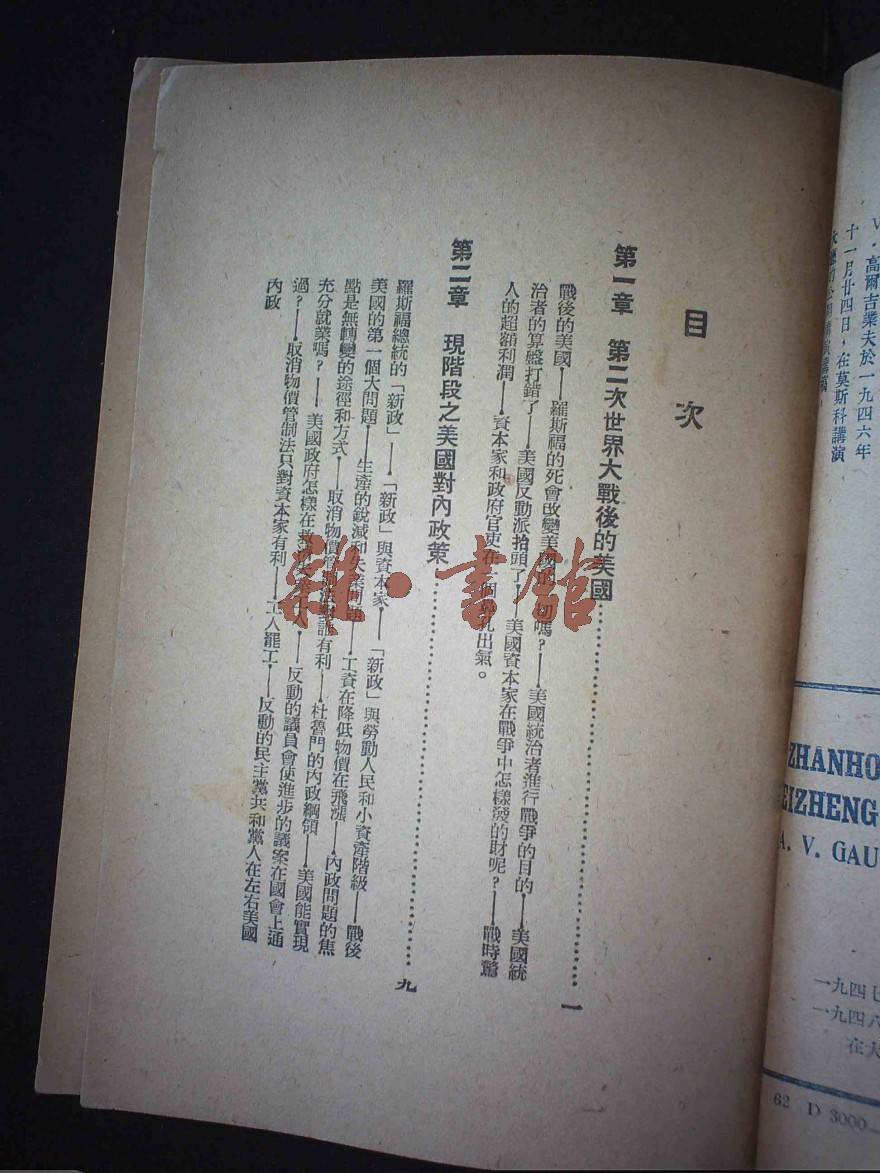 V．高爾吉業夫於一九四六年
十一月廿四日，在莫斯科講演
目次
第一章　第二次世界大戰後的美國……一
戰後的美國——羅斯福的死會改變美國的一切嗎？——美國統治者進行戰爭的目的——美國統
治者的算盤打錯了——美國反動派抬頭了——美國資本家在戰爭中怎樣發的財呢？——戰時驚
人的超額利潤——資本家和政府官吏在一個鼻孔出氣。
第二章　現階段之美國對內政策……九
羅斯福總統的「新政」——「新政」與資本家——「新政」與勞動人民和小資產階級——戰後
美國的第一個大問題——生產的銳減和失業問題——工資在降低物價在飛漲——內政問題的焦
點是無轉變的途徑和方式——取消物價管制法對誰有利——杜魯門的內政綱領——美國能實現
充分就業嗎？——美國政府怎樣在救濟失業工人——反動的議員會使進步的議案在國會上通
過？——取消物價管制法只對資本家有利——工人罷工——反動的民主黨共和黨人在左右美國
內政
雜·書館
ZHANHO
EIZHENG
A. V. GAU
一九四七
一九四八
在大
62 D 3000—